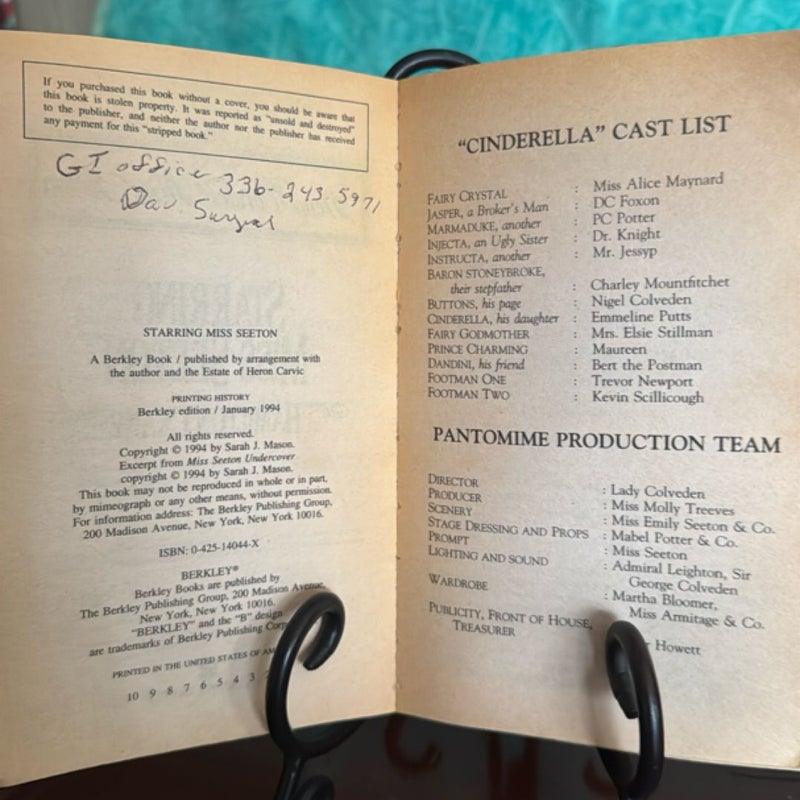 If you purchased this book without a cover, you should be aware that
this book is stolen property. It was reported as "unsold and destroyed"
to the publisher, and neither the author nor the publisher has received
any payment for this "stripped book."
GI office 336-243 5971
STARRING MISS SEETON
A Berkley Book / published by arrangement with
the author and the Estate of Heron Carvic
PRINTING HISTORY
Berkley edition / January 1994
All rights reserved.
Copyright © 1994 by Sarah J. Mason.
Excerpt from Miss Seeton Undercover
copyright © 1994 by Sarah J. Mason.
This book may not be reproduced in whole or in part,
by mimeograph or any other means, without permission.
For information address: The Berkley Publishing Group,
200 Madison Avenue, New York, New York 10016.
ISBN: 0-425-14044-X
BERKLEY®
Berkley Books are published by
The Berkley Publishing Group, 200 Madison Avenue,
New York, New York 10016.
"BERKLEY" and the "B" design
are trademarks of Berkley Publishing Corp
PRINTED IN THE UNITED STATES OF AM
10 9 8 7 6 5 4 3
"CINDERELLA" CAST LIST
FAIRY CRYSTAL : Miss Alice Maynard
JASPER, a Broker's Man : DC Foxon
MARMADUKE, another : PC Potter
INJECTA, an Ugly Sister : Dr. Knight
INSTRUCTA, another : Mr. Jessyp
BARON STONEYBROKE,
their stepfather : Charley Mountfitchet
BUTTONS, his page : Nigel Colveden
CINDERELLA, his daughter : Emmeline Putts
FAIRY GODMOTHER : Mrs. Elsie Stillman
PRINCE CHARMING : Maureen
DANDINI, his friend : Bert the Postman
FOOTMAN ONE : Trevor Newport
FOOTMAN TWO : Kevin Scillicough
PANTOMIME PRODUCTION TEAM
DIRECTOR : Lady Colveden
PRODUCER : Miss Molly Treeves
SCENERY : Miss Emily Seeton & Co.
STAGE DRESSING AND PROPS : Mabel Potter & Co.
PROMPT : Miss Seeton
LIGHTING AND SOUND : Admiral Leighton, Sir
George Colveden
WARDROBE : Martha Bloomer,
Miss Armitage & Co.
PUBLICITY, FRONT OF HOUSE,
TREASURER r Howett